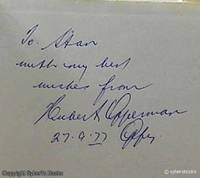 To Stan
with my best
wishes from
Hubert Opperman
27.9.77 Oppy.
Copyright Syber's Books
syberbooks